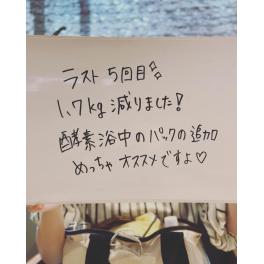 ラスト5回目
1.7kg減りました!
酵素浴中のパックの追加
めっちゃオススメですよ♡